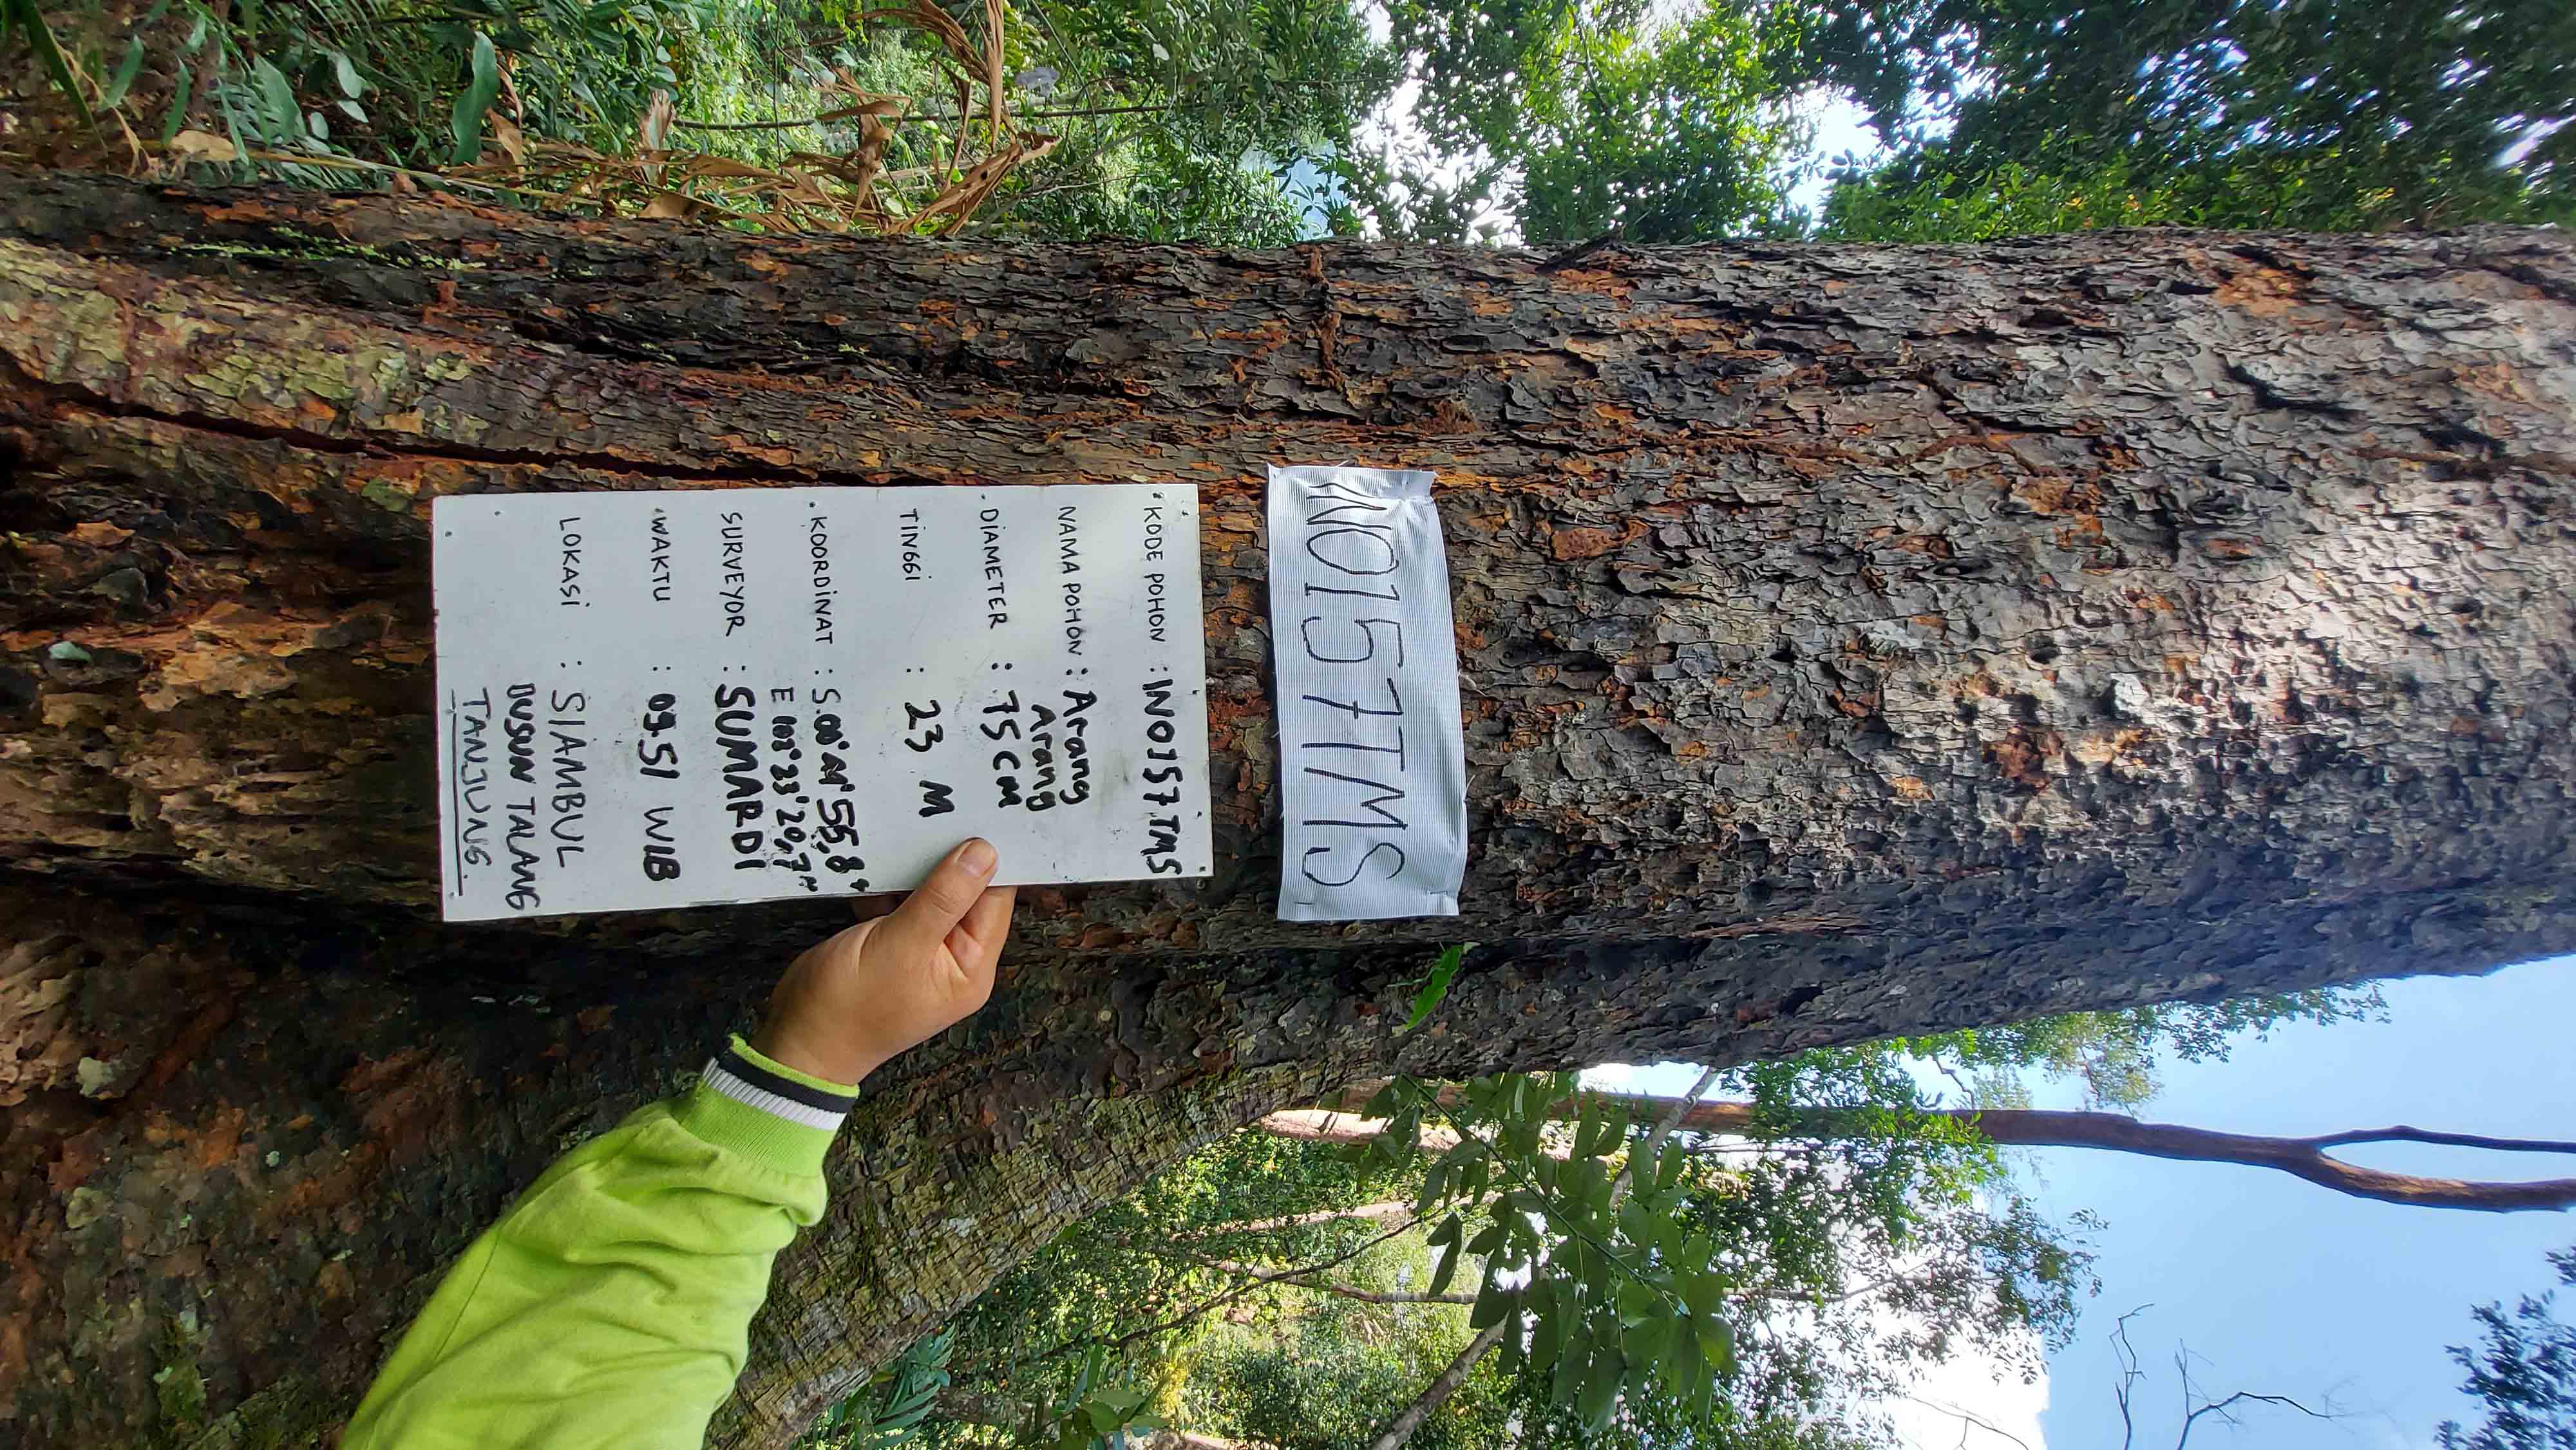 INO157TMS
KODE POHON : INO157TMS
NAMA POHON : Arang
Arang
DIAMETER : 75 CM
TINGGI : 23 M
KOORDINAT : S.
E 102° 33' 20,7"
SURVEYOR : SUMARDI
WAKTU : 09.51 WIB
LOKASI : SIAMBUL
DUSUN TALANG
TANJUNG